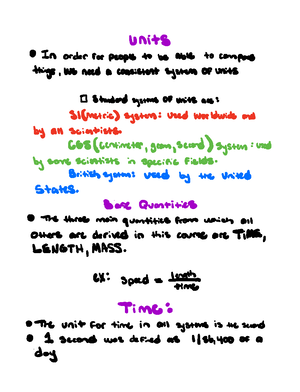 Units
• In order for people to be able to compare
things, we need a consistent system of units
□ Standard systems of units are:
SI(metric) system: used worldwide and
by all scientists.
CGS(centimeter, gram, second) system: used
by some scientists in specific fields.
British system: used by the United
States.
Base Quantities
• The three main quantities from which all
others are derived in this course are TIME,
LENGTH, MASS.
ex: speed = length
time
Time:
• The unit for time in all systems is the second
• 1 second was defined as 1/86,400 of a
day